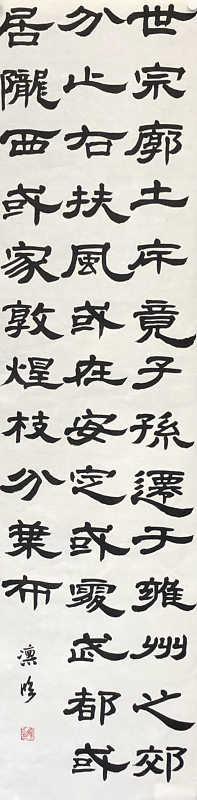 世宗廓土斥竟子孫遷于雍州之郊
分止右扶風或在安定或處武都或
居隴西或家敦煌枝分葉布
凛臨